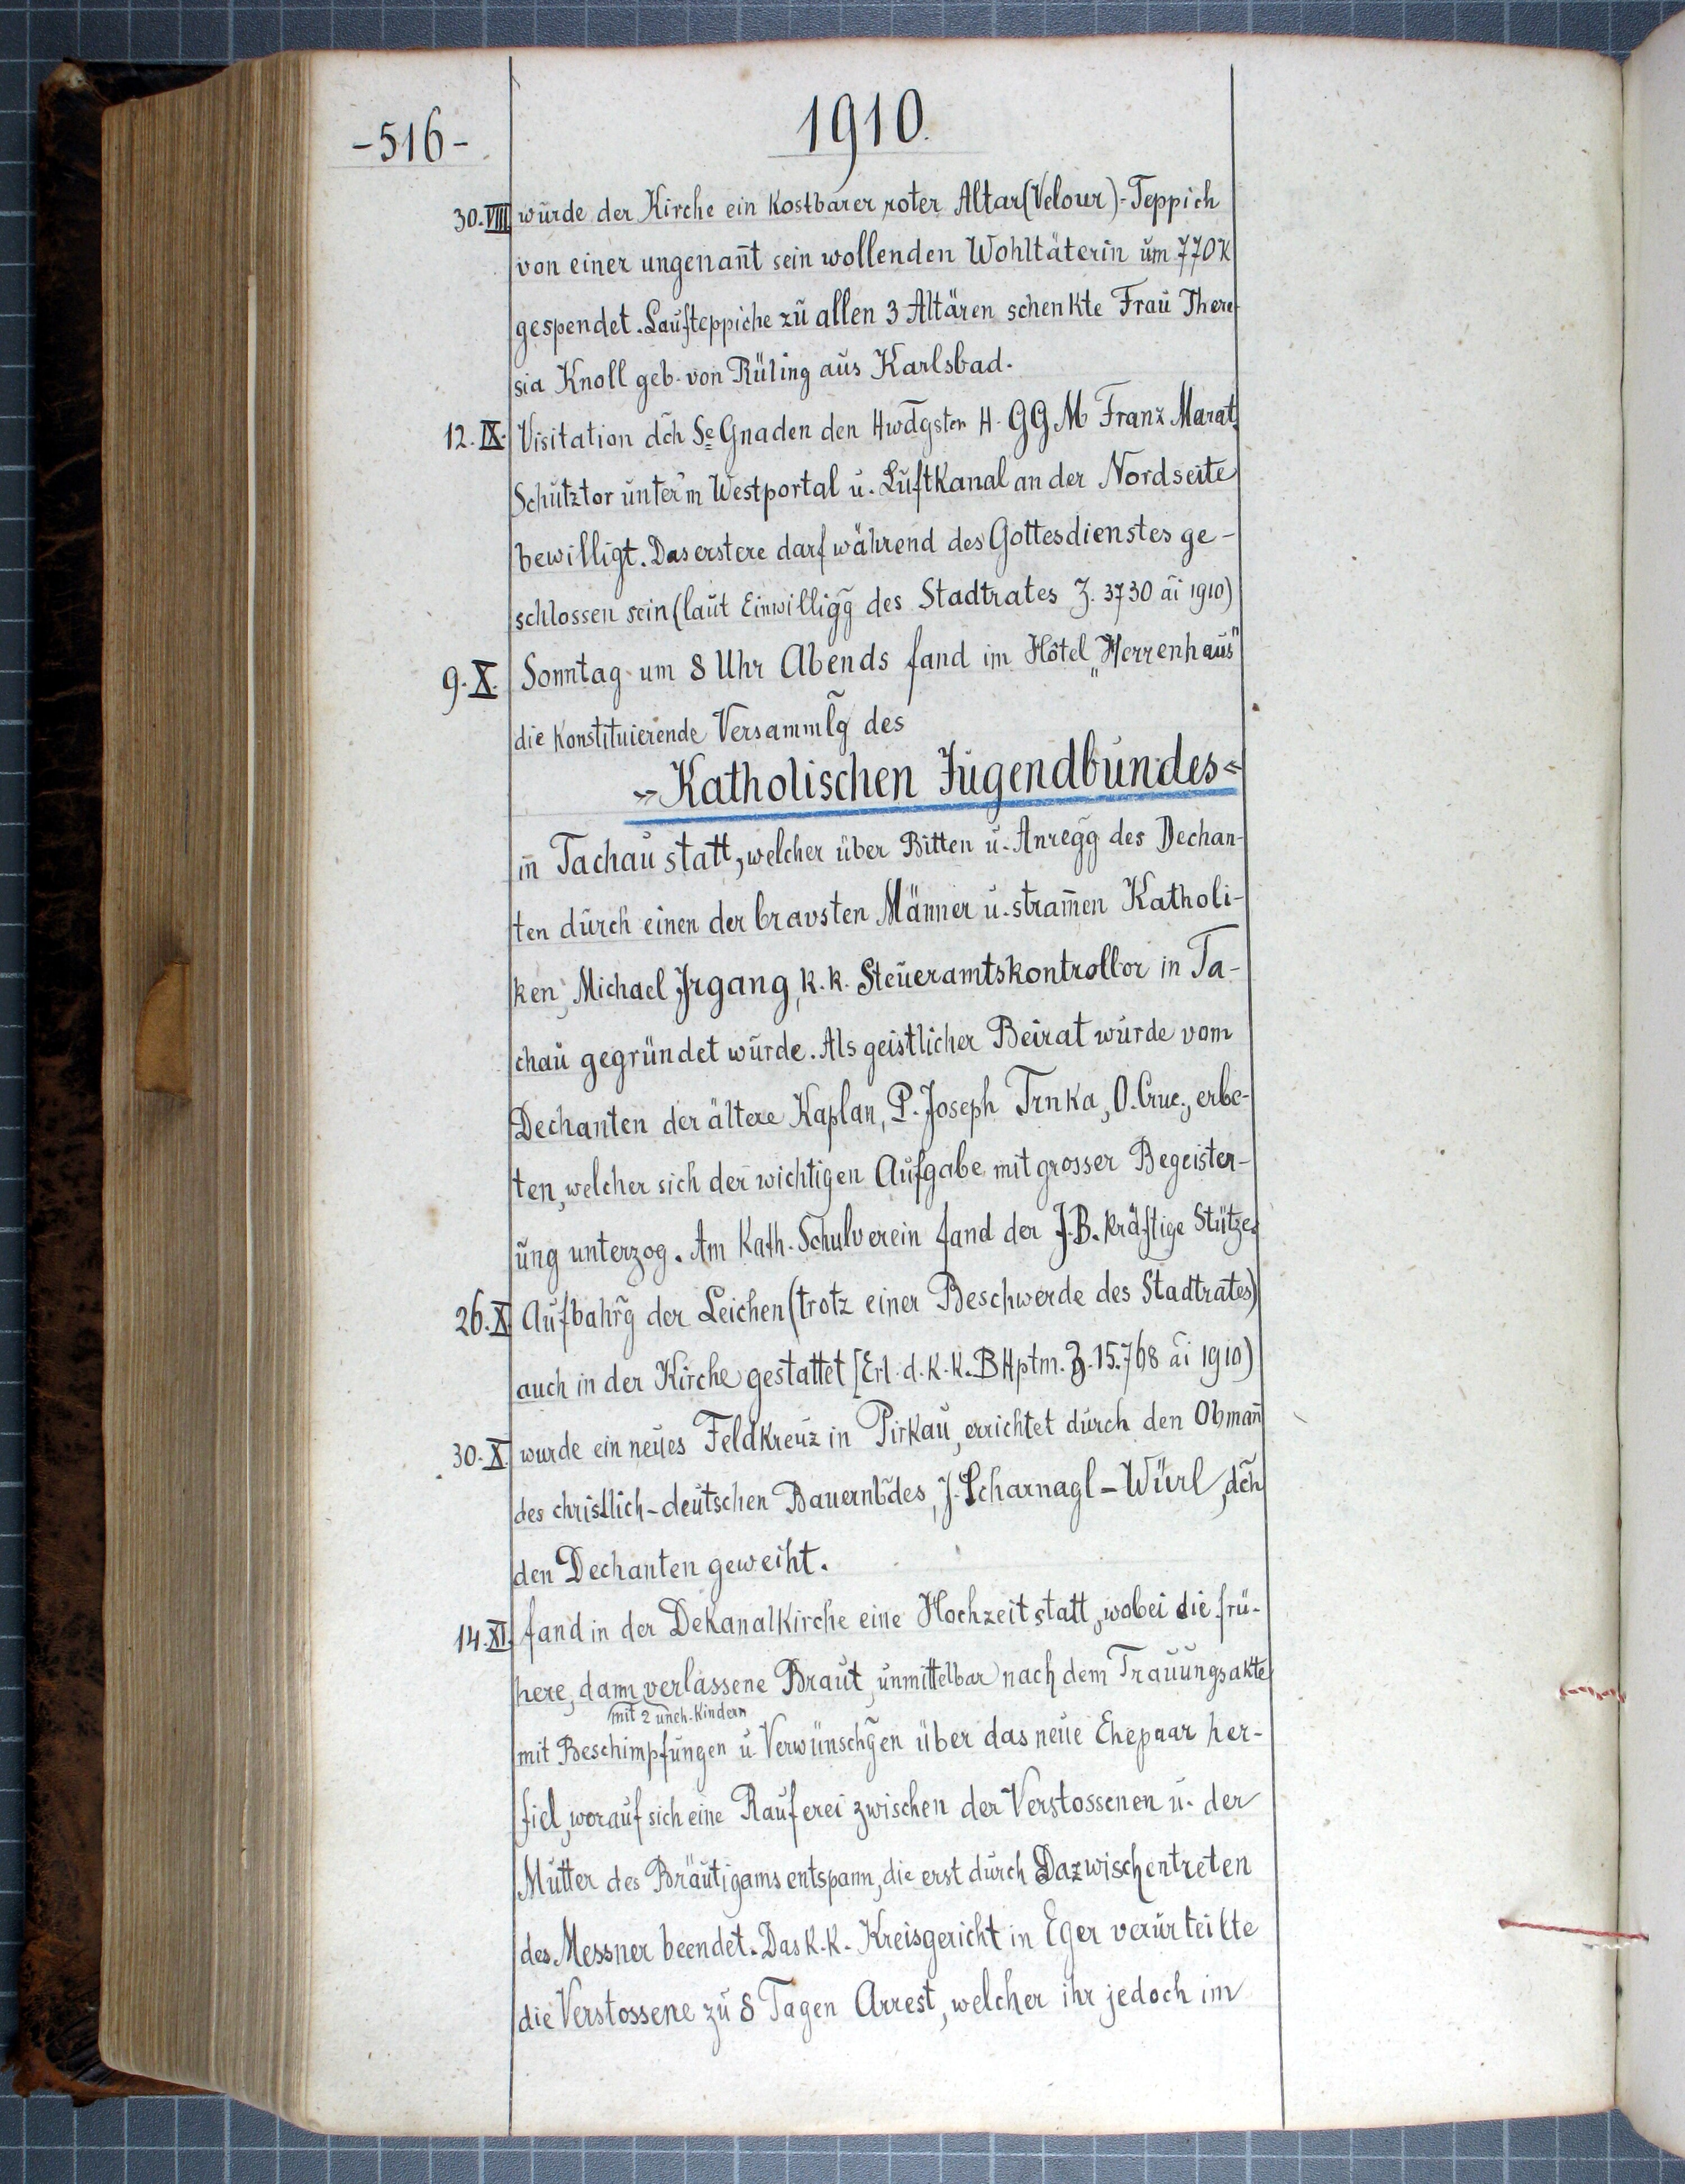 -516-
1910.
30.VIII. wurde der Kirche ein kostbarer roter Altar(Velour)-Teppich
von einer ungenan̄t sein wollenden Wohltäterin um 770 K
gespendet. Laufteppiche zu allen 3 Altären schenkte Frau There-
sia Knoll geb. von Rüling aus Karlsbad.
12.IX. Visitation dch̄ Se Gnaden den Hwdgsten H. GGM Franz Marat,
Schutztor unter'm Westportal u. Luftkanal an der Nordseite
bewilligt. Das erstere darf während des Gottesdienstes ge-
schlossen sein (laut Einwilligg̃ des Stadtrates Z. 3730 āi 1910)
9.X. Sonntag um 8 Uhr Abends fand im Hôtel „Herrenhaus"
die konstituierende Versammlg̃ des
»Katholischen Jugendbundes«
in̄ Tachau statt, welcher über Bitten u. Anregg̃ des Dechan-
ten durch einen der bravsten Männer u. stram̄en Katholi-
ken, Michael Jrgang, k. k. Steueramtskontrollor in Ta-
chau gegründet wurde. Als geistlicher Beirat wurde vom
Dechanten der ältere Kaplan, P. Joseph Trnka, O. Cruc., erbe-
ten, welcher sich der wichtigen Aufgabe mit grosser Begeister-
ung unterzog. Am Kath. Schulverein fand der J.B. kräftige Stütze.
26.X. Aufbahrg̃ der Leichen (trotz einer Beschwerde des Stadtrates)
auch in der Kirche gestattet [Erl. d. k. k. BHptm. Z. 15.768 āi 1910)
30.X. wurde ein neues Feldkreuz in Pirkau, errichtet durch den Obman̄
des christlich-deutschen Bauernbd̄es, J. Scharnagl-Würl, dch̄
den Dechanten geweiht.
14.XI. fand in der Dekanalkirche eine Hochzeit statt, wobei die frü-
here, dann verlassene Braut, unmittelbar nach dem Trauungsakte
mit 2 uneh. Kindern
mit Beschimpfungen u. Verwünschg̃en über das neue Ehepaar her-
fiel, worauf sich eine Rauferei zwischen der Verstossenen u. der
Mutter des Bräutigams entspann, die erst durch Dazwischentreten
des Messner beendet. Das k. k. Kreisgericht in Eger verurteilte
die Verstossene zu 8 Tagen Arrest, welcher ihr jedoch im